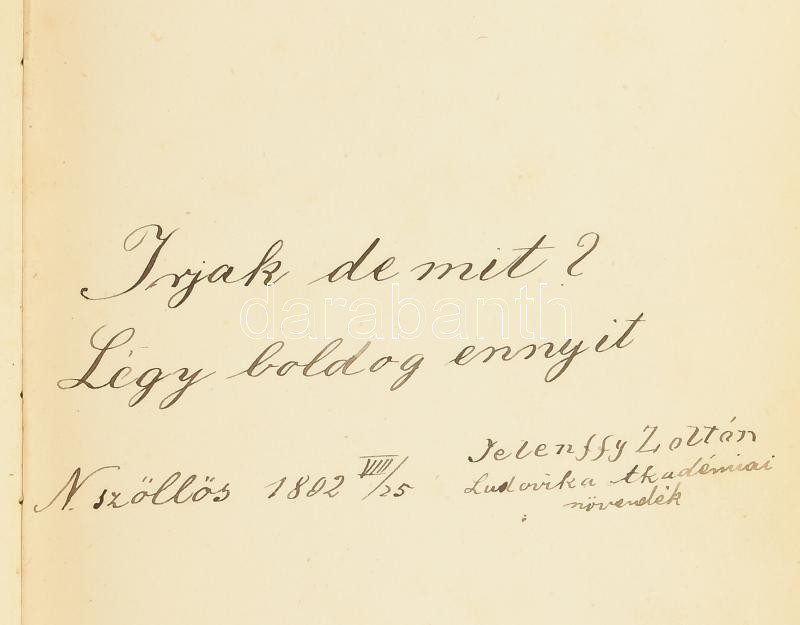 Irjak de mit?
darabanth
Légy boldog ennyit
Jelenffy Zoltán
Ludovika Akadémiai
növendék
N. szöllös 1892 VIII/25